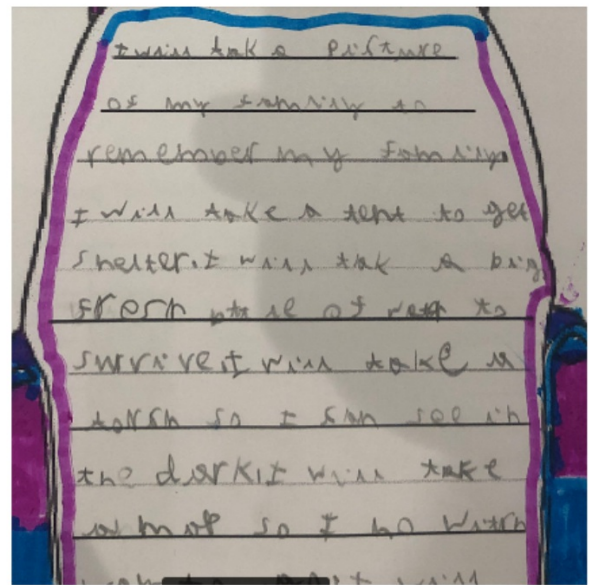 I will tak a picture
of my family to
remember my family.
I will take a tent to get
shelter. I will tak a big
fresh of to
survive I will take a
torch so I can see in
the dark. I will take
a map so I no witch
I will